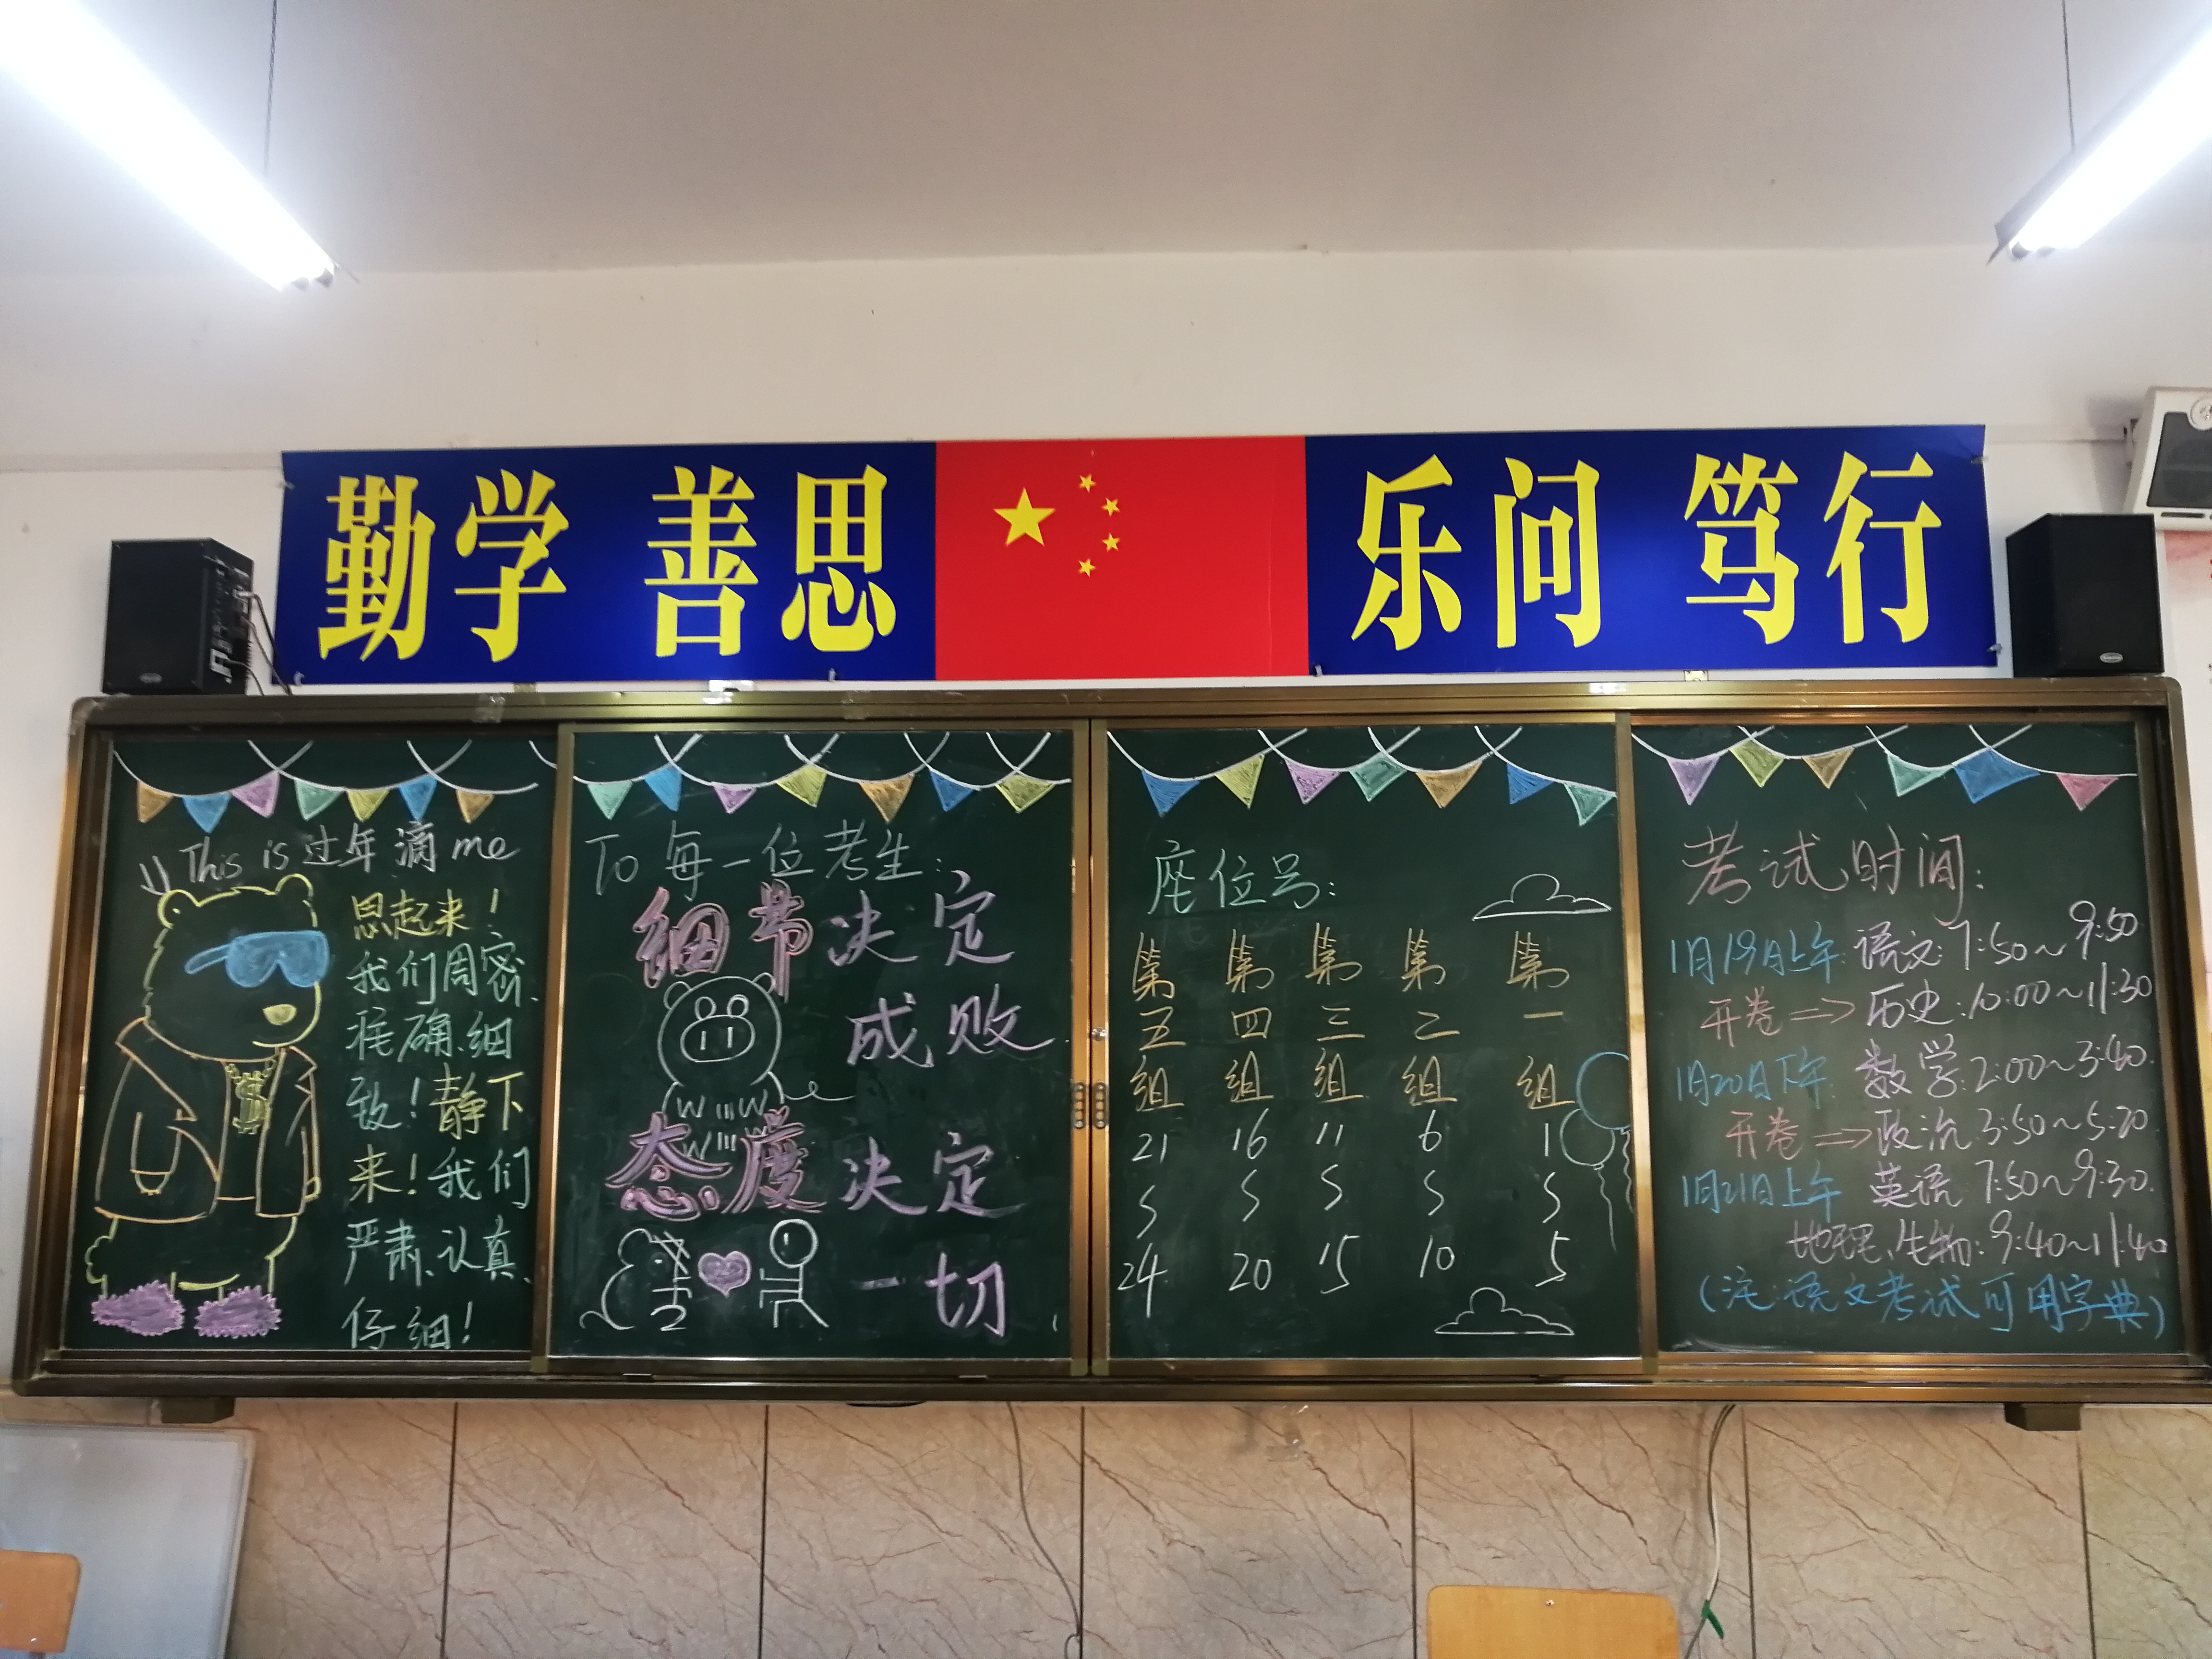 勤学 善思
乐问 笃行
This is 过年滴 me
思起来!
我们周密、
准确、细
致!静下
来!我们
严肃、认真、
仔细!
To 每一位考生:
细节决定
成败
态度决定
一切
座位号:
第五组 第四组 第三组 第二组 第一组
21 16 11 6 1
24 20 15 10 5
考试时间:
1月19日上午: 语文: 7:50~9:50
开卷 => 历史: 10:00~11:30
1月20日下午: 数学: 2:00~3:40
开卷 => 政治: 3:50~5:20
1月21日上午 英语 7:50~9:30
地理、生物: 9:40~11:40
(注:语文考试可用字典)